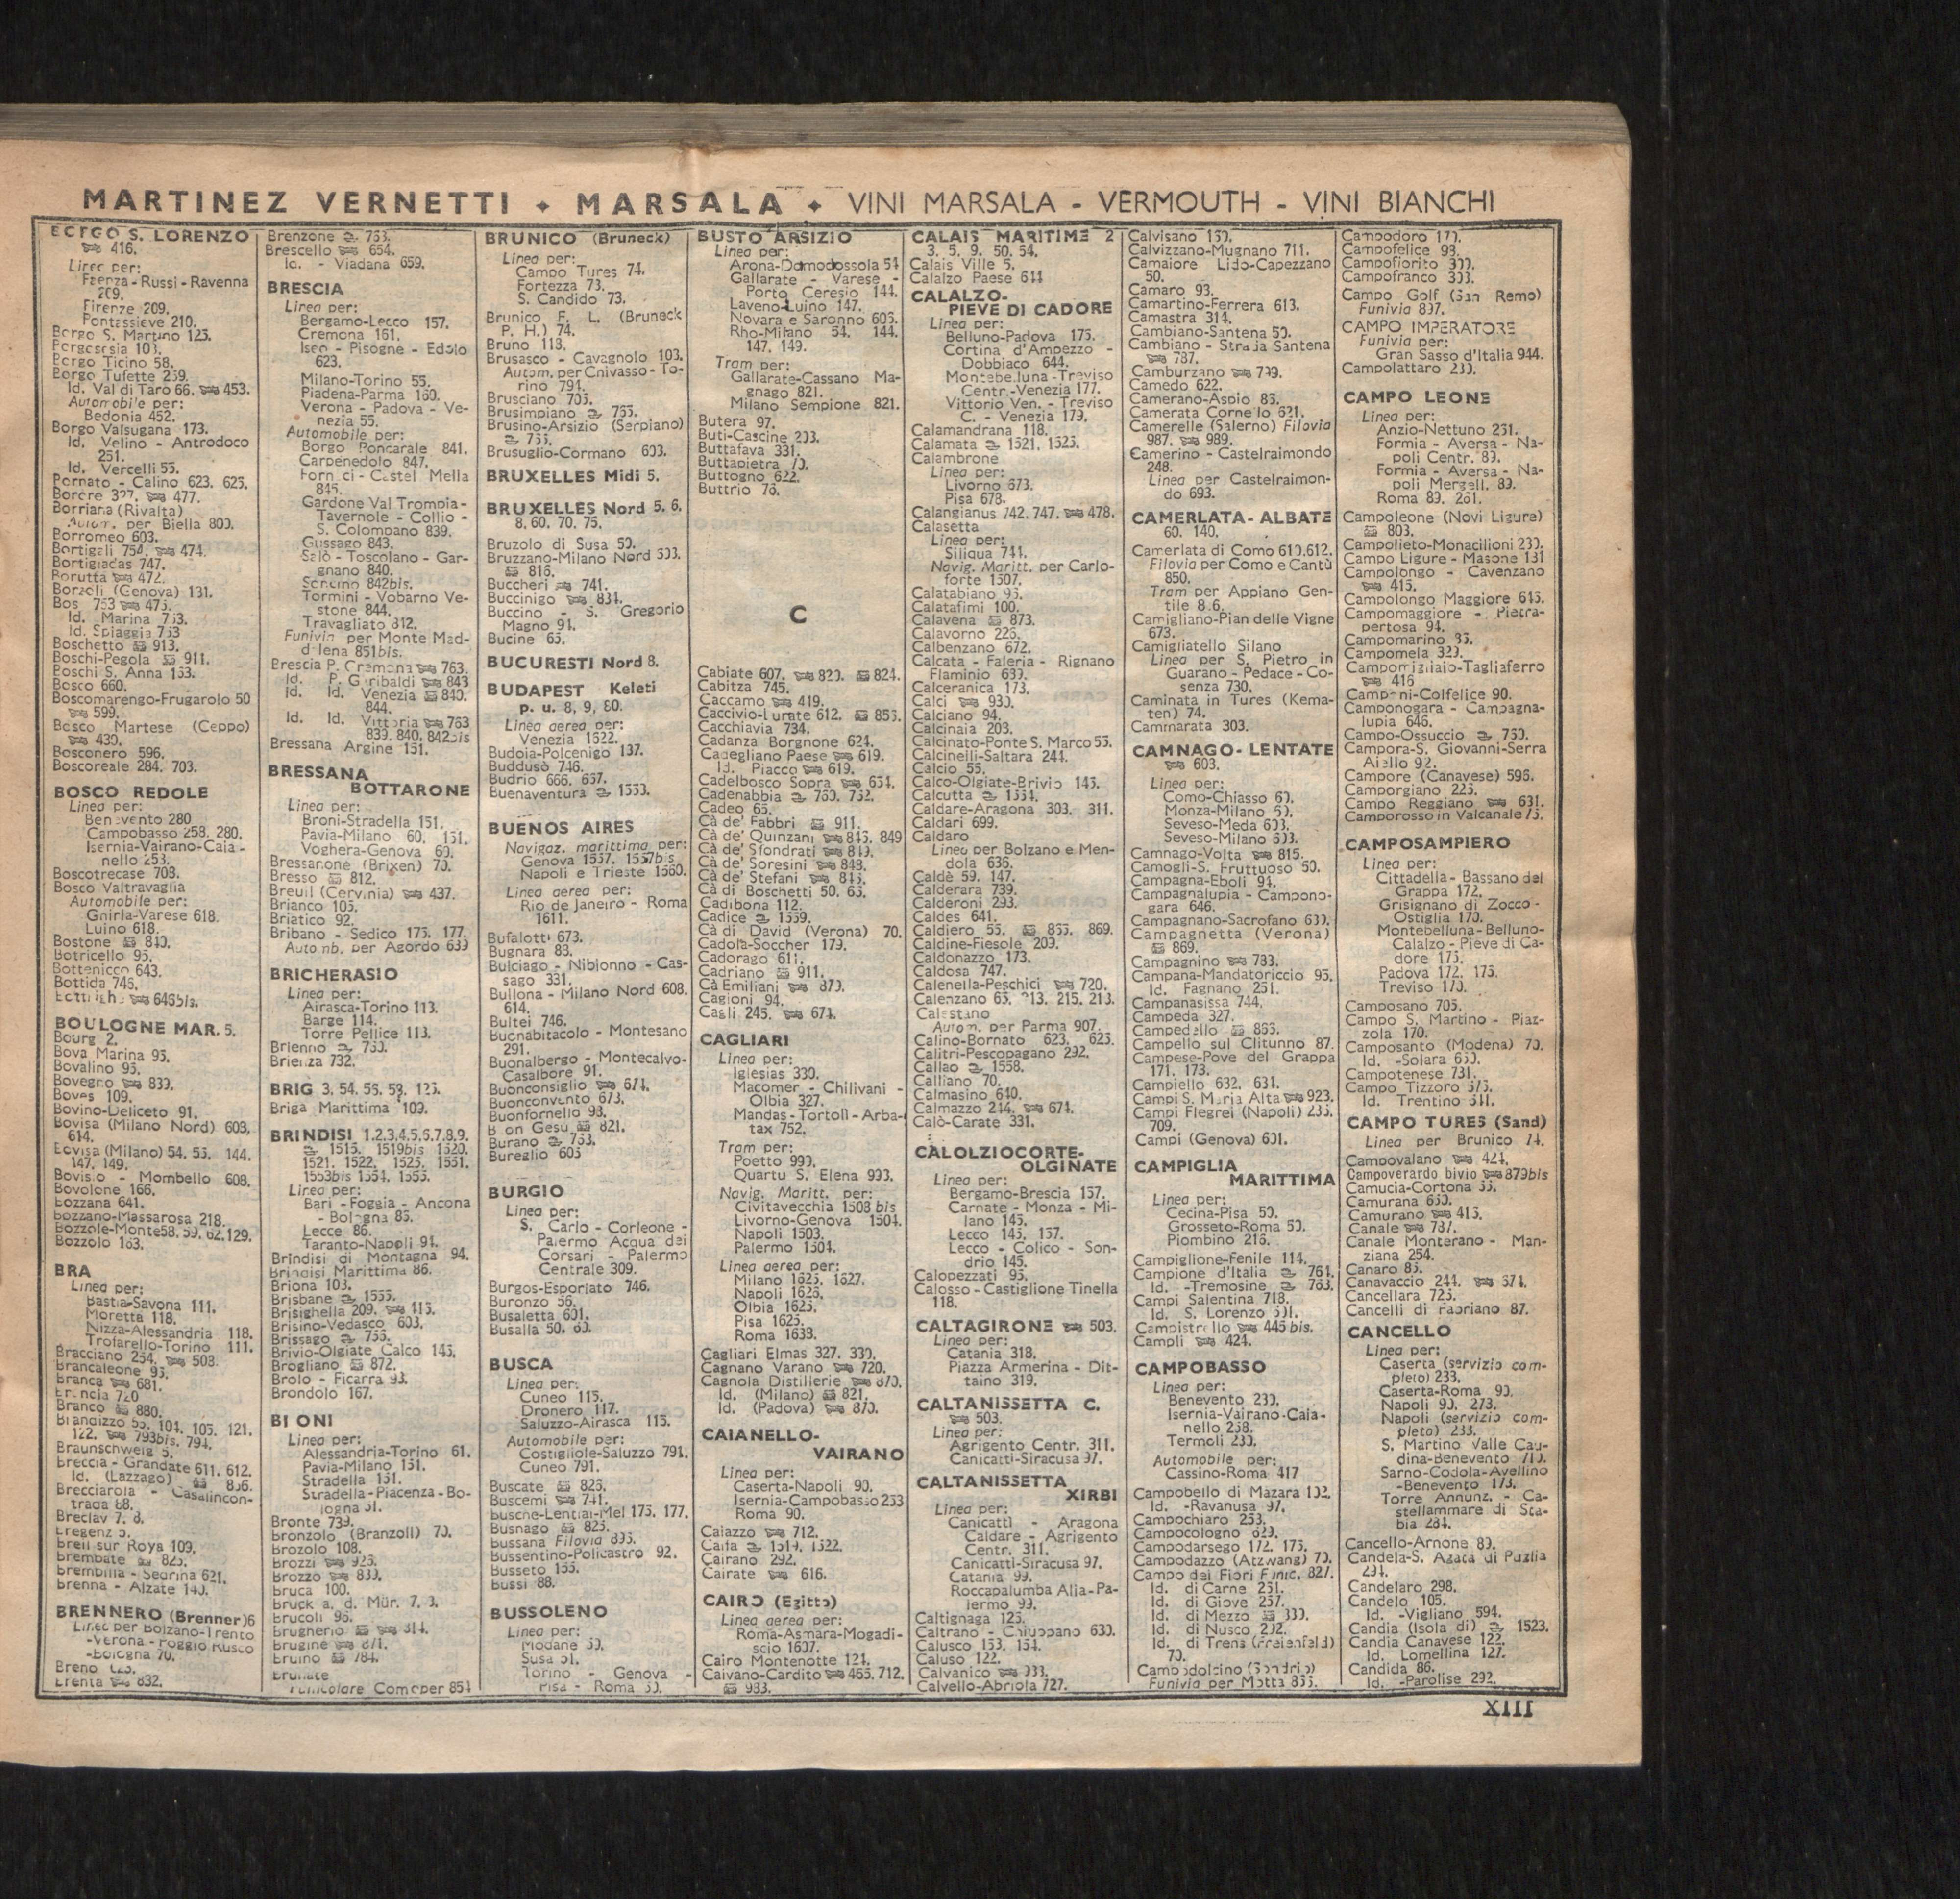 MARTINEZ VERNETTI ✦ MARSALA ✦ VINI MARSALA - VERMOUTH - VINI BIANCHI
S. LORENZO
416.
per:
- Russi - Ravenna
209.
Firenze 209.
Pontassieve 210.
Borgo S. Martino 125.
Borgosesia 103.
Borgo Ticino 58.
Borgo Tufette 259.
Id. Val di Taro 66. 453.
Automobile per:
Bedonia 452.
Borgo Valsugana 173.
Id. Velino - Antrodoco
251.
Id. Vercelli 55.
Bornato - Calino 623. 625.
Borore 327. 477.
Borriana (Rivalta)
Autom. per Biella 800.
Borromeo 603.
Bortigali 754. 474.
Bortigiadas 747.
Borutta 472.
Borzoli (Genova) 131.
Bosa 753 475.
Id. Marina 753.
Id. Spiaggia 753
Boschetto 913.
Boschi-Pegola 911.
Boschi S. Anna 153.
Bosco 660.
Boscomarengo-Frugarolo 50
599.
Bosco Martese (Ceppo)
430.
Bosconero 596.
Boscoreale 284. 703.
BOSCO REDOLE
Linea per:
Benevento 280
Campobasso 258. 280.
Isernia-Vairano-Caia-
nello 253.
Boscotrecase 703.
Bosco Valtravaglia
Automobile per:
Ghirla-Varese 618.
Luino 618.
Bostone 840.
Botricello 95.
Bottenicco 643.
Bottida 746.
646bis.
BOULOGNE MAR. 5.
Bourg 2.
Bova Marina 95.
Bovalino 95.
Bovegno 839.
Boves 109.
Bovino-Deliceto 91.
Bovisa (Milano Nord) 603.
614.
Bovisa (Milano) 54. 55. 144.
147. 149.
Bovisio - Mombello 608.
Bovolone 166.
Bozzana 641.
Bozzano-Massarosa 218.
Bozzole-Monte 58. 59. 62. 129.
Bozzolo 163.
BRA
Linea per:
Bastia-Savona 111.
Moretta 118.
Nizza-Alessandria 118.
Trofarello-Torino 111.
Bracciano 254. 503.
Brancaleone 95.
Branca 681.
720
Branco 880.
Brandizzo 55. 104. 105. 121.
122. 793bis. 794.
Braunschweig 5.
Breccia - Grandate 611. 612.
Id. (Lazzago) 856.
Brecciarola - Casalincon-
trada 88.
Breclav 7. 8.
Bregenz 5.
Breil sur Roya 109.
Brembate 825.
Brembilla - Sedrina 621.
Brenna - Alzate 140.
BRENNERO (Brenner) 6
Linea per Bolzano-Trento
-Verona - Poggio Rusco
-Bologna 70.
Breno 623.
Brenta 832.
Brenzone 763.
Brescello 654.
Id. - Viadana 659.
BRESCIA
Linea per:
Bergamo-Lecco 157.
Cremona 161.
Iseo - Pisogne - Edolo
623.
Milano-Torino 55.
Piadena-Parma 160.
Verona - Padova - Ve-
nezia 55.
Automobile per:
Borgo Poncarale 841.
Carpenedolo 847.
Fornaci - Castel Mella
845.
Gardone Val Trompia-
Tavernole - Collio -
S. Colompano 839.
Gussago 843.
Salò - Toscolano - Gar-
gnano 840.
Soncino 842bis.
Tormini - Vobarno Ve-
stone 844.
Travagliato 812.
Funivia per Monte Mad-
dalena 851bis.
Brescia P. Cremona 763.
Id. P. Garibaldi 843
Id. Id. Venezia 840.
844.
Id. Id. Vittoria 763
839. 840. 842bis
Bressana Argine 151.
BRESSANA
BOTTARONE
Linea per:
Broni-Stradella 151.
Pavia-Milano 60. 151.
Voghera-Genova 60.
Bressanone (Brixen) 70.
Bresso 812.
Breuil (Cervinia) 437.
Brianco 105.
Briatico 92.
Bribano - Sedico 175. 177.
Automb. per Agordo 639
BRICHERASIO
Linea per:
Airasca-Torino 113.
Barge 114.
Torre Pellice 113.
Brienno 750.
Brienza 732.
BRIG 3. 54. 56. 58. 125.
Briga Marittima 109.
BRINDISI 1.2.3.4.5.6.7.8.9.
1515. 1519bis 1520.
1521. 1522. 1525. 1551.
1553bis 1554. 1555.
Linea per:
Bari - Foggia - Ancona
- Bologna 85.
Lecce 86.
Taranto-Napoli 94.
Brindisi di Montagna 94.
Brindisi Marittima 86.
Briona 103.
Brisbane 1555.
Brisighella 209. 415.
Brisino-Vedasco 603.
Brissago 755.
Brivio-Olgiate Calco 145.
Brogliano 872.
Brolo - Ficarra 93.
Brondolo 167.
BRONI
Linea per:
Alessandria-Torino 61.
Pavia-Milano 151.
Stradella 151.
Stradella-Piacenza-Bo-
logna 61.
Bronte 739.
Bronzolo (Branzoll) 70.
Brozolo 108.
Brozzi 926.
Brozzo 839.
Bruca 100.
Bruck a. d. Mür. 7. 8.
Brucoli 96.
Brugherio 814.
Brugine 871.
Bruino 784.
Brunate
Funicolare Como per 851
BRUNICO (Bruneck)
Linea per:
Campo Tures 74.
Fortezza 73.
S. Candido 73.
Brunico F. L. (Bruneck
P. H.) 74.
Bruno 118.
Brusasco - Cavagnolo 103.
Autom. per Chivasso - To-
rino 794.
Brusciano 705.
Brusimpiano 755.
Brusino-Arsizio (Serpiano)
755.
Brusuglio-Cormano 603.
BRUXELLES Midi 5.
BRUXELLES Nord 5. 6.
8. 60. 70. 75.
Bruzolo di Susa 50.
Bruzzano-Milano Nord 603.
816.
Buccheri 741.
Buccinigo 834.
Buccino - S. Gregorio
Magno 91.
Bucine 65.
BUCURESTI Nord 8.
BUDAPEST Keleti
p. u. 8, 9, 80.
Linea aerea per:
Venezia 1622.
Budoia-Polcenigo 137.
Buddusò 746.
Budrio 666. 667.
Buenaventura 1553.
BUENOS AIRES
Navigaz. marittima per:
Genova 1557. 1557bis
Napoli e Trieste 1560.
Linea aerea per:
Rio de Janeiro - Roma
1611.
Bufalotti 673.
Bugnara 88.
Bulciago - Nibionno - Cas-
sago 331.
Bullona - Milano Nord 608.
614.
Bultei 746.
Buonabitacolo - Montesano
291.
Buonalbergo - Montecalvo-
Casalbore 91.
Buonconsiglio 674.
Buonconvento 673.
Buonfornello 98.
B on Gesu 821.
Burano 753.
Bureglio 605
BURGIO
Linea per:
S. Carlo - Corleone -
Palermo Acqua dei
Corsari - Palermo
Centrale 309.
Burgos-Esporlato 746.
Buronzo 56.
Busaletta 601.
Busalla 50. 60.
BUSCA
Linea per:
Cuneo 115.
Dronero 117.
Saluzzo-Airasca 115.
Automobile per:
Costigliole-Saluzzo 791.
Cuneo 791.
Buscate 826.
Buscemi 741.
Busche-Lentiai-Mel 175. 177.
Busnago 825.
Bussana Filovia 895.
Bussentino-Policastro 92.
Busseto 155.
Bussi 88.
BUSSOLENO
Linea per:
Modane 50.
Susa 51.
Torino - Genova -
Pisa - Roma 50.
BUSTO ARSIZIO
Linea per:
Arona-Domodossola 54
Gallarate - Varese -
Porto Ceresio 144.
Laveno-Luino 147.
Novara e Saronno 605.
Rho-Milano 54. 144.
147. 149.
Tram per:
Gallarate-Cassano Ma-
gnago 821.
Milano Sempione 821.
Butera 97.
Buti-Cascine 203.
Buttafava 331.
Buttapietra 70.
Buttogno 622.
Buttrio 76.
C
Cabiate 607. 820. 824.
Cabitza 745.
Caccamo 419.
Caccivio-Lurate 612. 856.
Cacchiavia 734.
Cadanza Borgnone 624.
Cadegliano Paese 619.
Id. Piacco 619.
Cadelbosco Sopra 654.
Cadenabbia 750. 752.
Cadeo 65.
Cà de' Fabbri 911.
Cà de' Quinzani 845. 849
Cà de' Sfondrati 849.
Cà de' Soresini 848.
Cà de' Stefani 845.
Cà di Boschetti 50. 65.
Cadibona 112.
Cadice 1559.
Cà di David (Verona) 70.
Cadola-Soccher 179.
Cadorago 611.
Cadriano 911.
Cà Emiliani 870.
Cagioni 94.
Cagli 245. 674.
CAGLIARI
Linea per:
Iglesias 330.
Macomer - Chilivani -
Olbia 327.
Mandas - Tortolì - Arba-
tax 752.
Tram per:
Poetto 990.
Quartu S. Elena 990.
Navig. Maritt. per:
Civitavecchia 1503 bis
Livorno-Genova 1504.
Napoli 1503.
Palermo 1504.
Linea aerea per:
Milano 1625. 1627.
Napoli 1625.
Olbia 1625.
Pisa 1625.
Roma 1638.
Cagliari Elmas 327. 330.
Cagnano Varano 720.
Cagnola Distillerie 870.
Id. (Milano) 821.
Id. (Padova) 870.
CAIANELLO-
VAIRANO
Linea per:
Caserta-Napoli 90.
Isernia-Campobasso 253
Roma 90.
Caiazzo 712.
Caifa 1519. 1522.
Cairano 292.
Cairate 616.
CAIRO (Egitto)
Linea aerea per:
Roma-Asmara-Mogadi-
scio 1607.
Cairo Montenotte 124.
Caivano-Cardito 465. 712.
983.
CALAIS MARITIME 2
3. 5. 9. 50. 54.
Calais Ville 5.
Calalzo Paese 644
CALALZO-
PIEVE DI CADORE
Linea per:
Belluno-Padova 175.
Cortina d'Ampezzo -
Dobbiaco 644.
Montebelluna-Treviso
Centr.-Venezia 177.
Vittorio Ven. - Treviso
C. - Venezia 179.
Calamandrana 118.
Calamata 1521. 1525.
Calambrone
Linea per:
Livorno 673.
Pisa 678.
Calangianus 742. 747. 478.
Calasetta
Linea per:
Siliqua 744.
Navig. Maritt. per Carlo-
forte 1507.
Calatabiano 95.
Calatafimi 100.
Calavena 873.
Calavorno 226.
Calbenzano 672.
Calcata - Faleria - Rignano
Flaminio 639.
Calceranica 173.
Calci 930.
Calciano 94.
Calcinaia 203.
Calcinato-Ponte S. Marco 55.
Calcinelli-Saltara 244.
Calcio 55.
Calco-Olgiate-Brivio 145.
Calcutta 1554.
Caldare-Aragona 303. 311.
Caldari 699.
Caldaro
Linea per Bolzano e Men-
dola 636.
Caldè 59. 147.
Calderara 739.
Calderoni 293.
Caldes 641.
Caldiero 55. 855. 869.
Caldine-Fiesole 209.
Caldonazzo 173.
Caldosa 747.
Calenella-Peschici 720.
Calenzano 65. 213. 215. 213.
Calestano
Autom. per Parma 907.
Calino-Bornato 623. 625.
Calitri-Pescopagano 292.
Callao 1558.
Calliano 70.
Calmasino 640.
Calmazzo 244. 674.
Calò-Carate 331.
CALOLZIOCORTE-
OLGINATE
Linea per:
Bergamo-Brescia 157.
Carnate - Monza - Mi-
lano 145.
Lecco 145. 157.
Lecco - Colico - Son-
drio 145.
Calopezzati 95.
Calosso - Castiglione Tinella
118.
CALTAGIRONE 503.
Linea per:
Catania 318.
Piazza Armerina - Dit-
taino 319.
CALTANISSETTA C.
503.
Linea per:
Agrigento Centr. 311.
Canicattì-Siracusa 97.
CALTANISSETTA
XIRBI
Linea per:
Canicattì - Aragona
Caldare - Agrigento
Centr. 311.
Canicattì-Siracusa 97.
Catania 99.
Roccapalumba Alia-Pa-
lermo 99.
Caltignaga 125.
Caltrano - Chiuppano 630.
Calusco 153. 154.
Caluso 122.
Calvanico 933.
Calvello-Abriola 727.
Calvisano 150.
Calvizzano-Mugnano 711.
Camaiore Lido-Capezzano
50.
Camaro 93.
Camartino-Ferrera 613.
Camastra 314.
Cambiano-Santena 50.
Cambiano - Strada Santena
787.
Camburzano 799.
Camedo 622.
Camerano-Aspio 85.
Camerata Cornello 621.
Camerelle (Salerno) Filovia
987. 989.
Camerino - Castelraimondo
248.
Linea per Castelraimon-
do 693.
CAMERLATA - ALBATE
60. 140.
Camerlata di Como 610.612.
Filovia per Como e Cantù
850.
Tram per Appiano Gen-
tile 856.
Camigliano-Pian delle Vigne
673.
Camigliatello Silano
Linea per S. Pietro in
Guarano - Pedace - Co-
senza 730.
Caminata in Tures (Kema-
ten) 74.
Cammarata 303.
CAMNAGO - LENTATE
603.
Linea per:
Como-Chiasso 60.
Monza-Milano 60.
Seveso-Meda 603.
Seveso-Milano 603.
Camnago-Volta 815.
Camogli-S. Fruttuoso 50.
Campagna-Eboli 94.
Campagnalupia - Campono-
gara 646.
Campagnano-Sacrofano 639.
Campagnetta (Verona)
869.
Campagnino 783.
Campana-Mandatoriccio 95.
Id. Fagnano 251.
Campanasissa 744.
Campeda 327.
Campedello 865.
Campello sul Clitunno 87.
Campese-Pove del Grappa
171. 173.
Campiello 632. 631.
Campi S. Maria Alta 923.
Campi Flegrei (Napoli) 235.
709.
Campi (Genova) 601.
CAMPIGLIA
MARITTIMA
Linea per:
Cecina-Pisa 50.
Grosseto-Roma 50.
Piombino 216.
Campiglione-Fenile 114.
Campione d'Italia 761.
Id. -Tremosine 763.
Campi Salentina 718.
Id. S. Lorenzo 501.
Campistrello 445 bis.
Campli 424.
CAMPOBASSO
Linea per:
Benevento 230.
Isernia-Vairano-Caia-
nello 258.
Termoli 230.
Automobile per:
Cassino-Roma 417
Campobello di Mazara 102.
Id. -Ravanusa 97.
Campochiaro 253.
Campocologno 629.
Campodarsego 172. 175.
Campodazzo (Atzwang) 70.
Campo dei Fiori Funic. 827.
Id. di Carne 251.
Id. di Giove 257.
Id. di Mezzo 330.
Id. di Nusco 292.
Id. di Trens (Freienfeld)
70.
Campodolcino (Sondrio)
Funivia per Motta 855.
Campodoro 170.
Campofelice 98.
Campofiorito 309.
Campofranco 303.
Campo Golf (San Remo)
Funivia 897.
CAMPO IMPERATORE
Funivia per:
Gran Sasso d'Italia 944.
Campolattaro 230.
CAMPO LEONE
Linea per:
Anzio-Nettuno 251.
Formia - Aversa - Na-
poli Centr. 89.
Formia - Aversa - Na-
poli Mergell. 89.
Roma 89. 261.
Campoleone (Novi Ligure)
803.
Campolieto-Monacilioni 230.
Campo Ligure - Masone 131
Campolongo - Cavenzano
415.
Campolongo Maggiore 646.
Campomaggiore - Pietra-
pertosa 94.
Campomarino 85.
Campomela 329.
Campomigliaio-Tagliaferro
416
Campeni-Colfelice 90.
Camponogara - Campagna-
lupia 646.
Campo-Ossuccio 750.
Campora-S. Giovanni-Serra
Aiello 92.
Campore (Canavese) 596.
Camporgiano 225.
Campo Reggiano 631.
Camporosso in Valcanale 75.
CAMPOSAMPIERO
Linea per:
Cittadella - Bassano del
Grappa 172.
Grisignano di Zocco -
Ostiglia 170.
Montebelluna-Belluno-
Calalzo - Pieve di Ca-
dore 175.
Padova 172. 175.
Treviso 170.
Camposano 705.
Campo S. Martino - Piaz-
zola 170.
Camposanto (Modena) 70.
Id. -Solara 650.
Campotenese 731.
Campo Tizzoro 675.
Id. Trentino 641.
CAMPO TURES (Sand)
Linea per Brunico 74.
Campovalano 424.
Campoverardo bivio 879bis
Camucia-Cortona 65.
Camurana 650.
Camurano 415.
Canale 787.
Canale Monterano - Man-
ziana 254.
Canaro 85.
Canavaccio 244. 674.
Cancellara 725.
Cancelli di Fabriano 87.
CANCELLO
Linea per:
Caserta (servizio com-
pleto) 233.
Caserta-Roma 90.
Napoli 90. 273.
Napoli (servizio com-
pleto) 233.
S. Martino Valle Cau-
dina-Benevento 710.
Sarno-Codola-Avellino
-Benevento 173.
Torre Annunz. - Ca-
stellammare di Sta-
bia 284.
Cancello-Arnone 89.
Candela-S. Agata di Puglia
294.
Candelaro 298.
Candelo 105.
Id. -Vigliano 594.
Candia (Isola di) 1523.
Candia Canavese 122.
Id. Lomellina 127.
Candida 86.
Id. -Parolise 292.
XIII